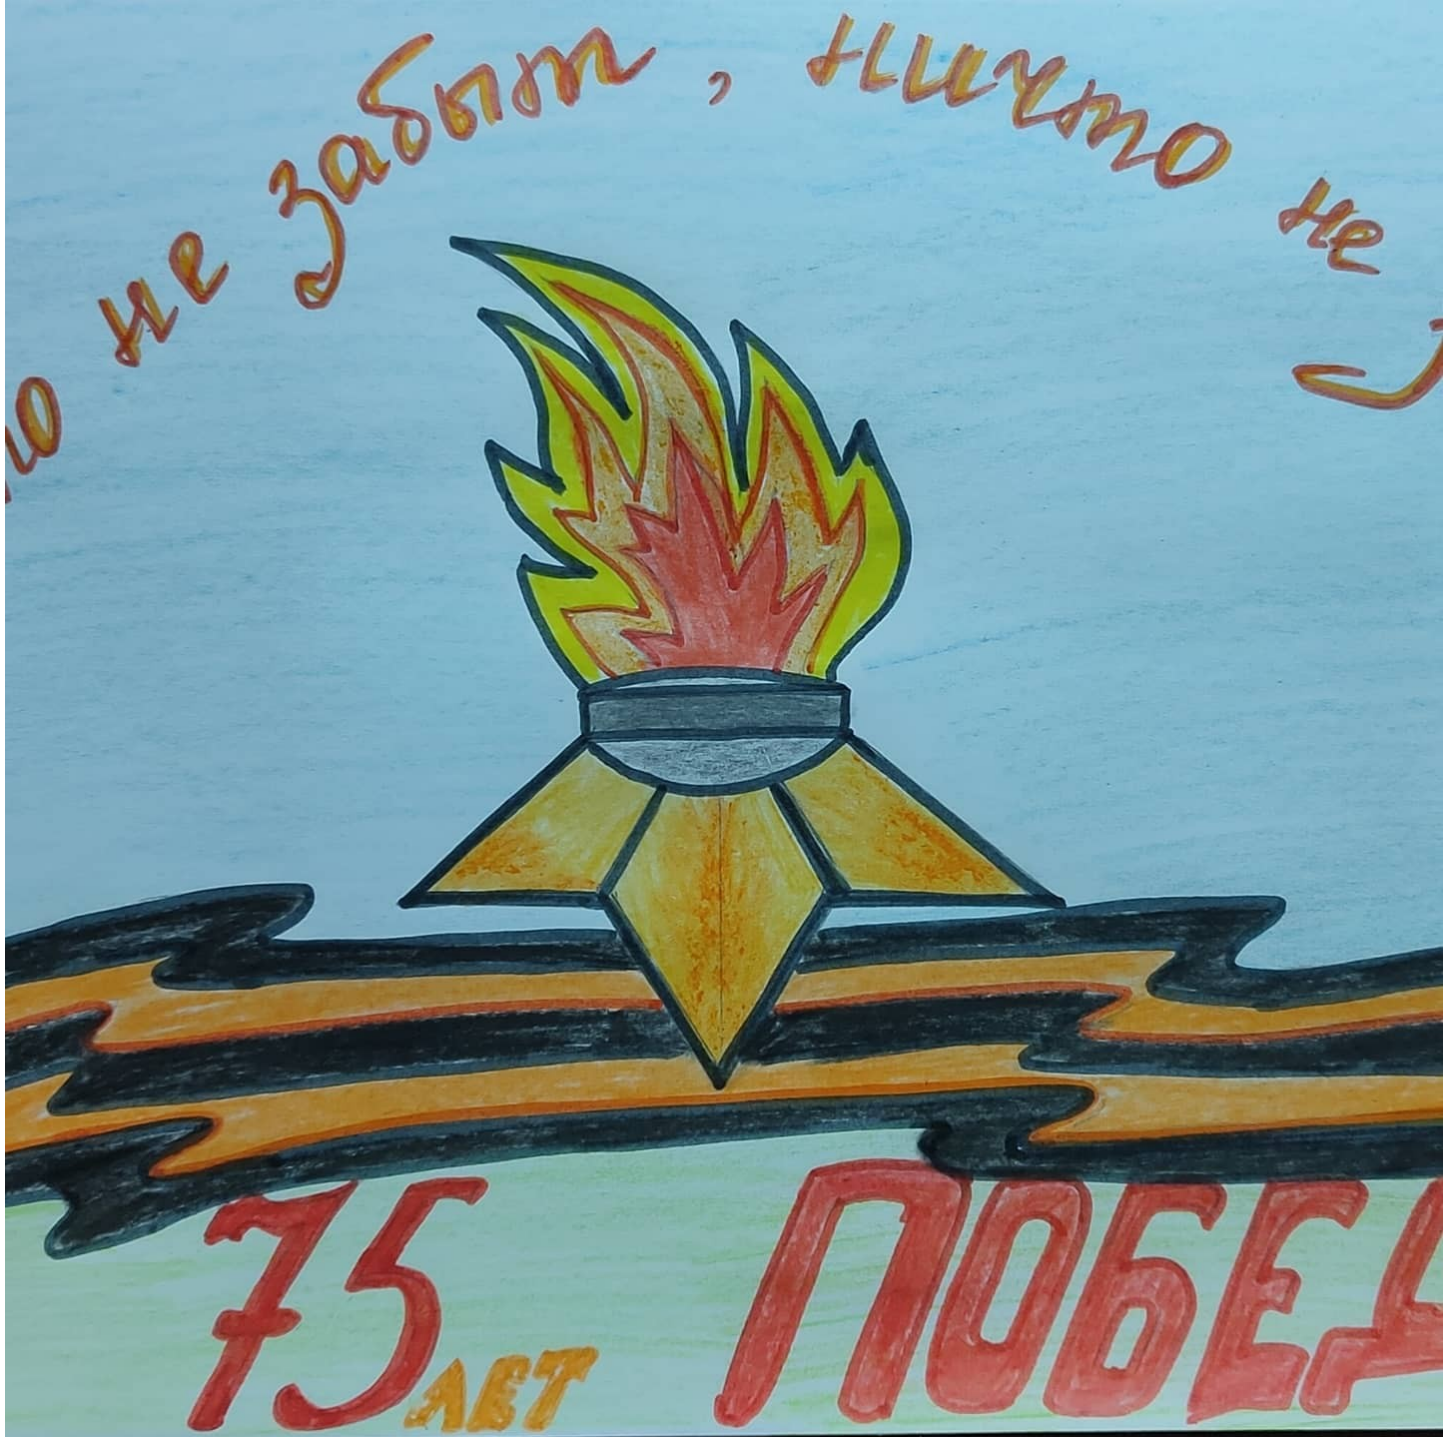 то не забыт, ничто не з
75 ЛЕТ ПОБЕД